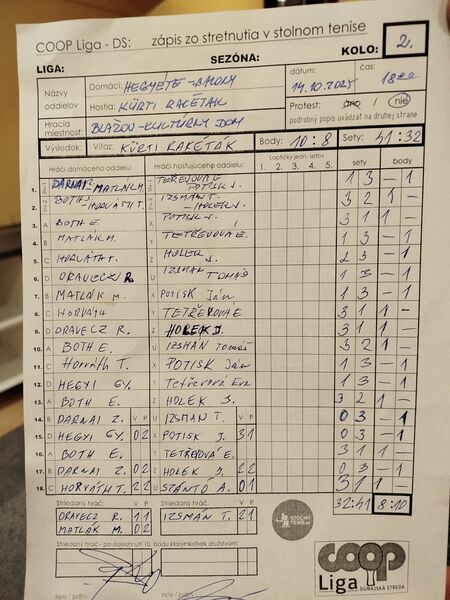 COOP Liga - DS: zápis zo stretnutia v stolnom tenise
LIGA: SEZÓNA: KOLO: 2.
Názvy oddielov Domáci: HEGYÉTE - BALONY dátum: 14.10.2025 čas: 18⁰⁰
Hostia: KÜRTI RAKETÁK Protest: áno / nie
Hracia miestnosť: BLAŽOV - KULTÚRNY DOM podrobný popis uvádzať na druhej strane
Výsledok: Víťaz: KÜRTI RAKETÁK Body: 10:8 Sety: 41:32
Hráči domáceho oddielu: Hráči hosťujúceho oddielu: Loptičky jedn. setov sety body
1. 2. 3. 4. 5.
1. DARNAI - MATLÁK M. TETŘEVOVÁ E. POTISK J. 1 3 - 1
2. BOTH E. - HORVÁTH T. IZSMÁN T. - HOLEK J. 3 2 1 -
3. A BOTH E. X POTISK J. 3 1 1 -
4. B MATLÁK M. Y TETŘEVOVÁ E. 1 3 - 1
5. C HORVÁTH T. Z HOLEK J. 2 3 - 1
6. D ORAVECZ R. U IZSMÁN TOMÁŠ 1 3 - 1
7. B MATLÁK M. X POTISK Ján 1 3 - 1
8. C HORVÁTH Y TETŘEVOVÁ E 3 1 1 -
9. D ORAVECZ R. Z HOLEK J. 3 1 1 -
10. A BOTH E. U IZSMÁN Tomáš 3 2 1 -
11. C Horváth T. X POTISK Ján 1 3 - 1
12. D HEGYI Gy. Y Tetřevová Eva 1 3 - 1
13. A BOTH E. Z HOLEK J. 3 2 1 -
14. B DARNAI Z. V P U IZSMÁN T. V P 0 3 - 1
15. D HEGYI Gy. 0 2 X POTISK J. 3 1 0 3 - 1
16. A BOTH E. Y TETŘEVOVÁ E. 3 1 1 -
17. B DARNAI Z. 0 2 Z HOLEK J. 2 2 0 3 - 1
18. C HORVÁTH T. 2 2 U SZÁNTÓ A. 0 1 3 1 1 -
Striedaný hráč: V P Striedaný hráč: V P 32:41 8:10
ORAVECZ R. 1 1 IZSMÁN T. 2 1
MATLÁK M. 0 2
STOLNÝ TENIS.SK
Striedaný hráč - po dosiahnutí 10. bodu ktorýmkoľvek družstvom:
meno / podpis meno / podpis
coop
Liga DUNAJSKÁ STREDA